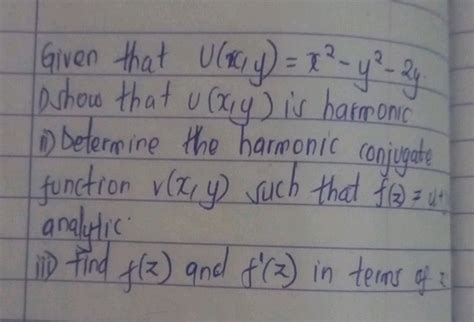 Given that U(x,y) = x² - y² - 2y
i) show that U(x,y) is harmonic
ii) Determine the harmonic conjugate
function v(x,y) such that f(z) = u+
analytic.
iii) find f(z) and f'(z) in terms of z